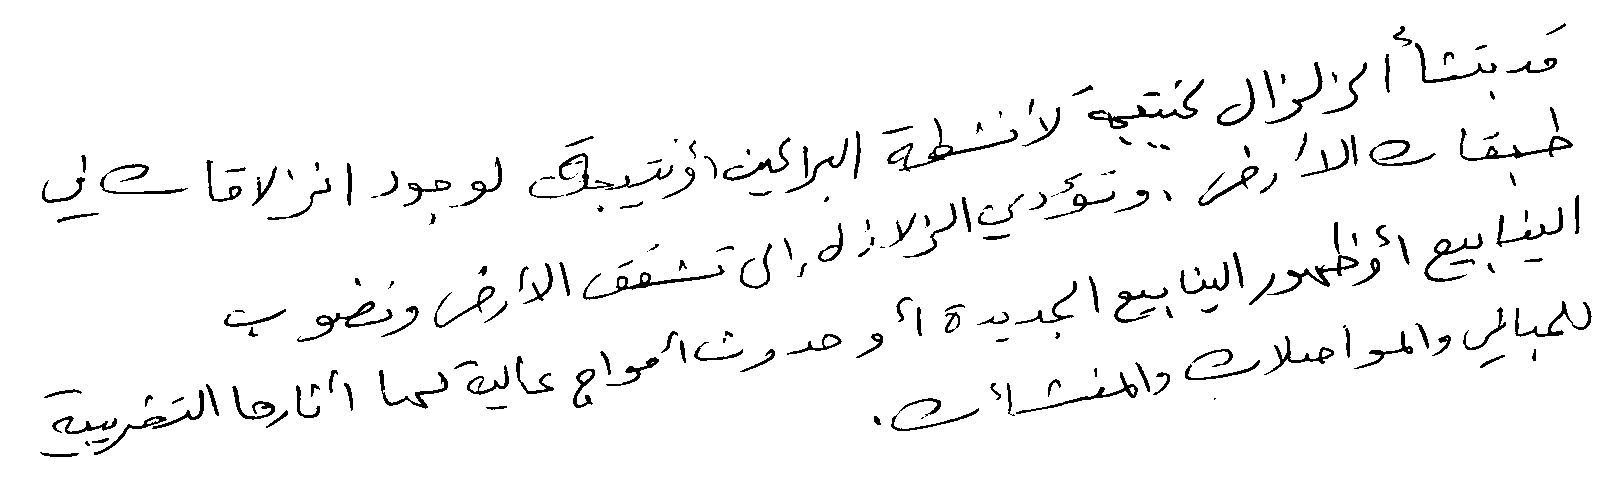 قد ينشأ الزلزال كنتيجة لأنشطة البراكين أو نتيجة لوجود انزلاقات في
طبقات الأرض . وتؤدي الزلازل إلى تشقق الأرض ونضوب
الينابيع أو ظهور الينابيع الجديدة أو حدوث أمواج عالية لها أثارها التخريبية
للمباني والمواصلات والمنشأت .